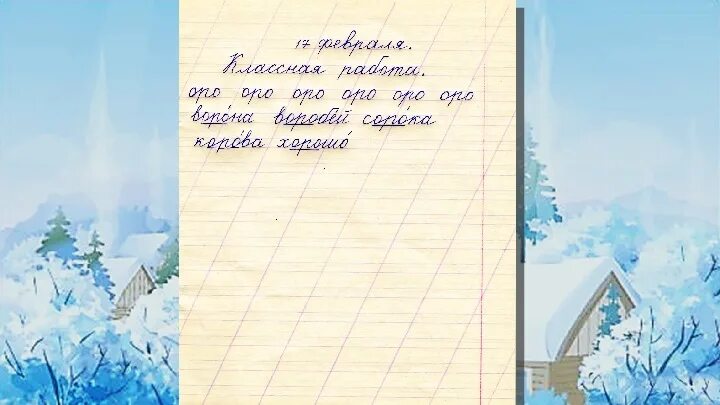 17 февраля.
Классная работа.
оро оро оро оро оро оро
воро́на воробе́й соро́ка
коро́ва хорошо́